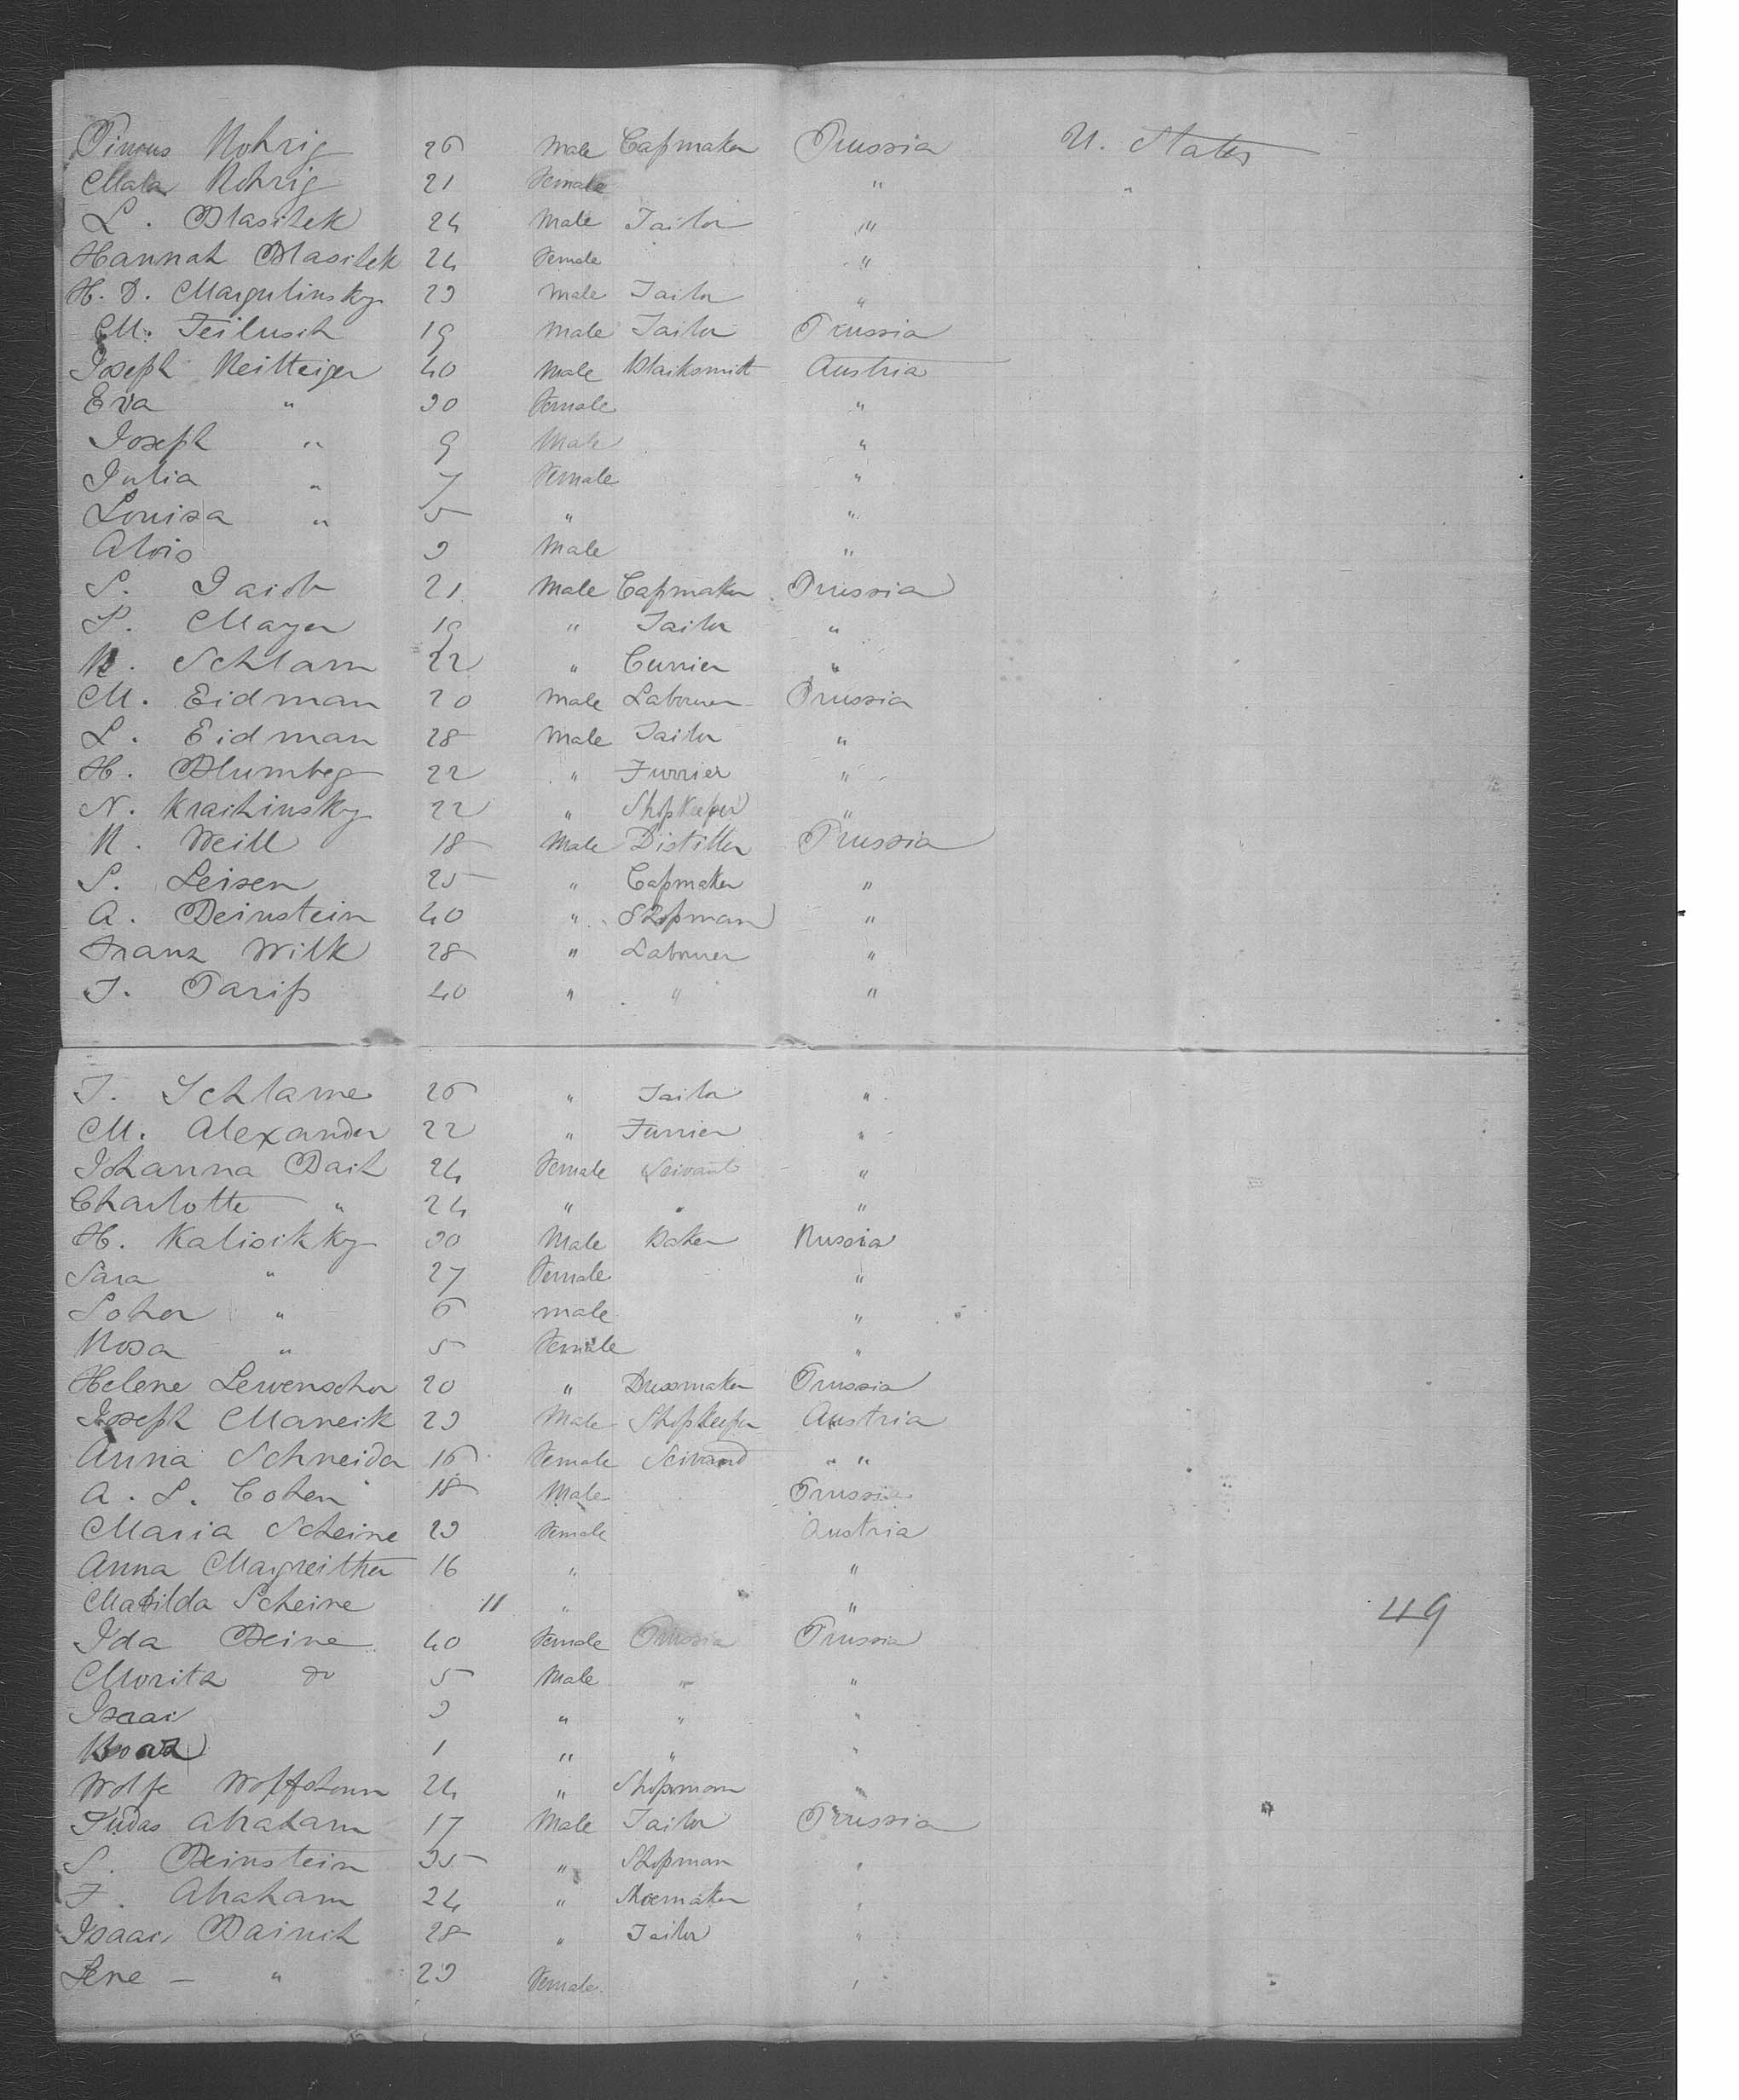 Pincus Rohrig 26 Male Capmaker Prussia U. States
Mala Rohrig 21 Female " "
L. Blasitek 24 Male Tailor "
Hannah Blasitek 24 Female "
H. D. Margulinsky 23 Male Tailor "
M. Teilusch 19 Male Tailor Prussia
Joseph Reitteiger 40 Male Blacksmith Austria
Eva " 30 Female "
Joseph " 9 Male "
Julia " 7 Female "
Louisa " 5 " "
Alois 3 Male "
S. Jacob 21 Male Capmaker Prussia
S. Mayer 19 " Tailor "
M. Schlam 22 " Currier "
M. Eidman 20 Male Labourer Prussia
L. Eidman 28 Male Tailor "
H. Blumbeg 22 " Furrier "
N. Krachinsky 22 " Shopkeeper "
R. Weill 18 Male Distiller Prussia
S. Leisen 25 " Capmaker "
A. Beinstein 40 " Shopman "
Franz Wilk 28 " Labourer "
J. Pariß 40 " " "
J. Schlame 26 " Tailor "
M. Alexander 22 " Furrier "
Johanna Bach 24 Female Servant "
Charlotte " 24 " " "
H. Kalisckky 30 Male Baker Russia
Sara " 27 Female "
Soher " 6 male "
Rosa " 5 Female "
Helene Lewenscher 20 " Dressmaker Prussia
Joseph Maneck 23 Male Shopkeeper Austria
Anna Schneider 16 Female Servand " "
A. S. Cohen 18 Male Prussia
Maria Scheine 23 Female Austria
Anna Magreither 16 " "
Matilda Scheine 11 " " 49
Ida Beine 40 Female Prussia Prussia
Moritz do 5 Male " "
Isaac 3 " " "
1 " " "
Wolfe 24 " Shopman "
Judas Abraham 17 Male Tailor Prussia
S. Beinstein 35 " Shopman "
J. Abraham 24 " Shoemaker "
Isaac Bainch 28 " Tailor "
Lene - " 23 Female "